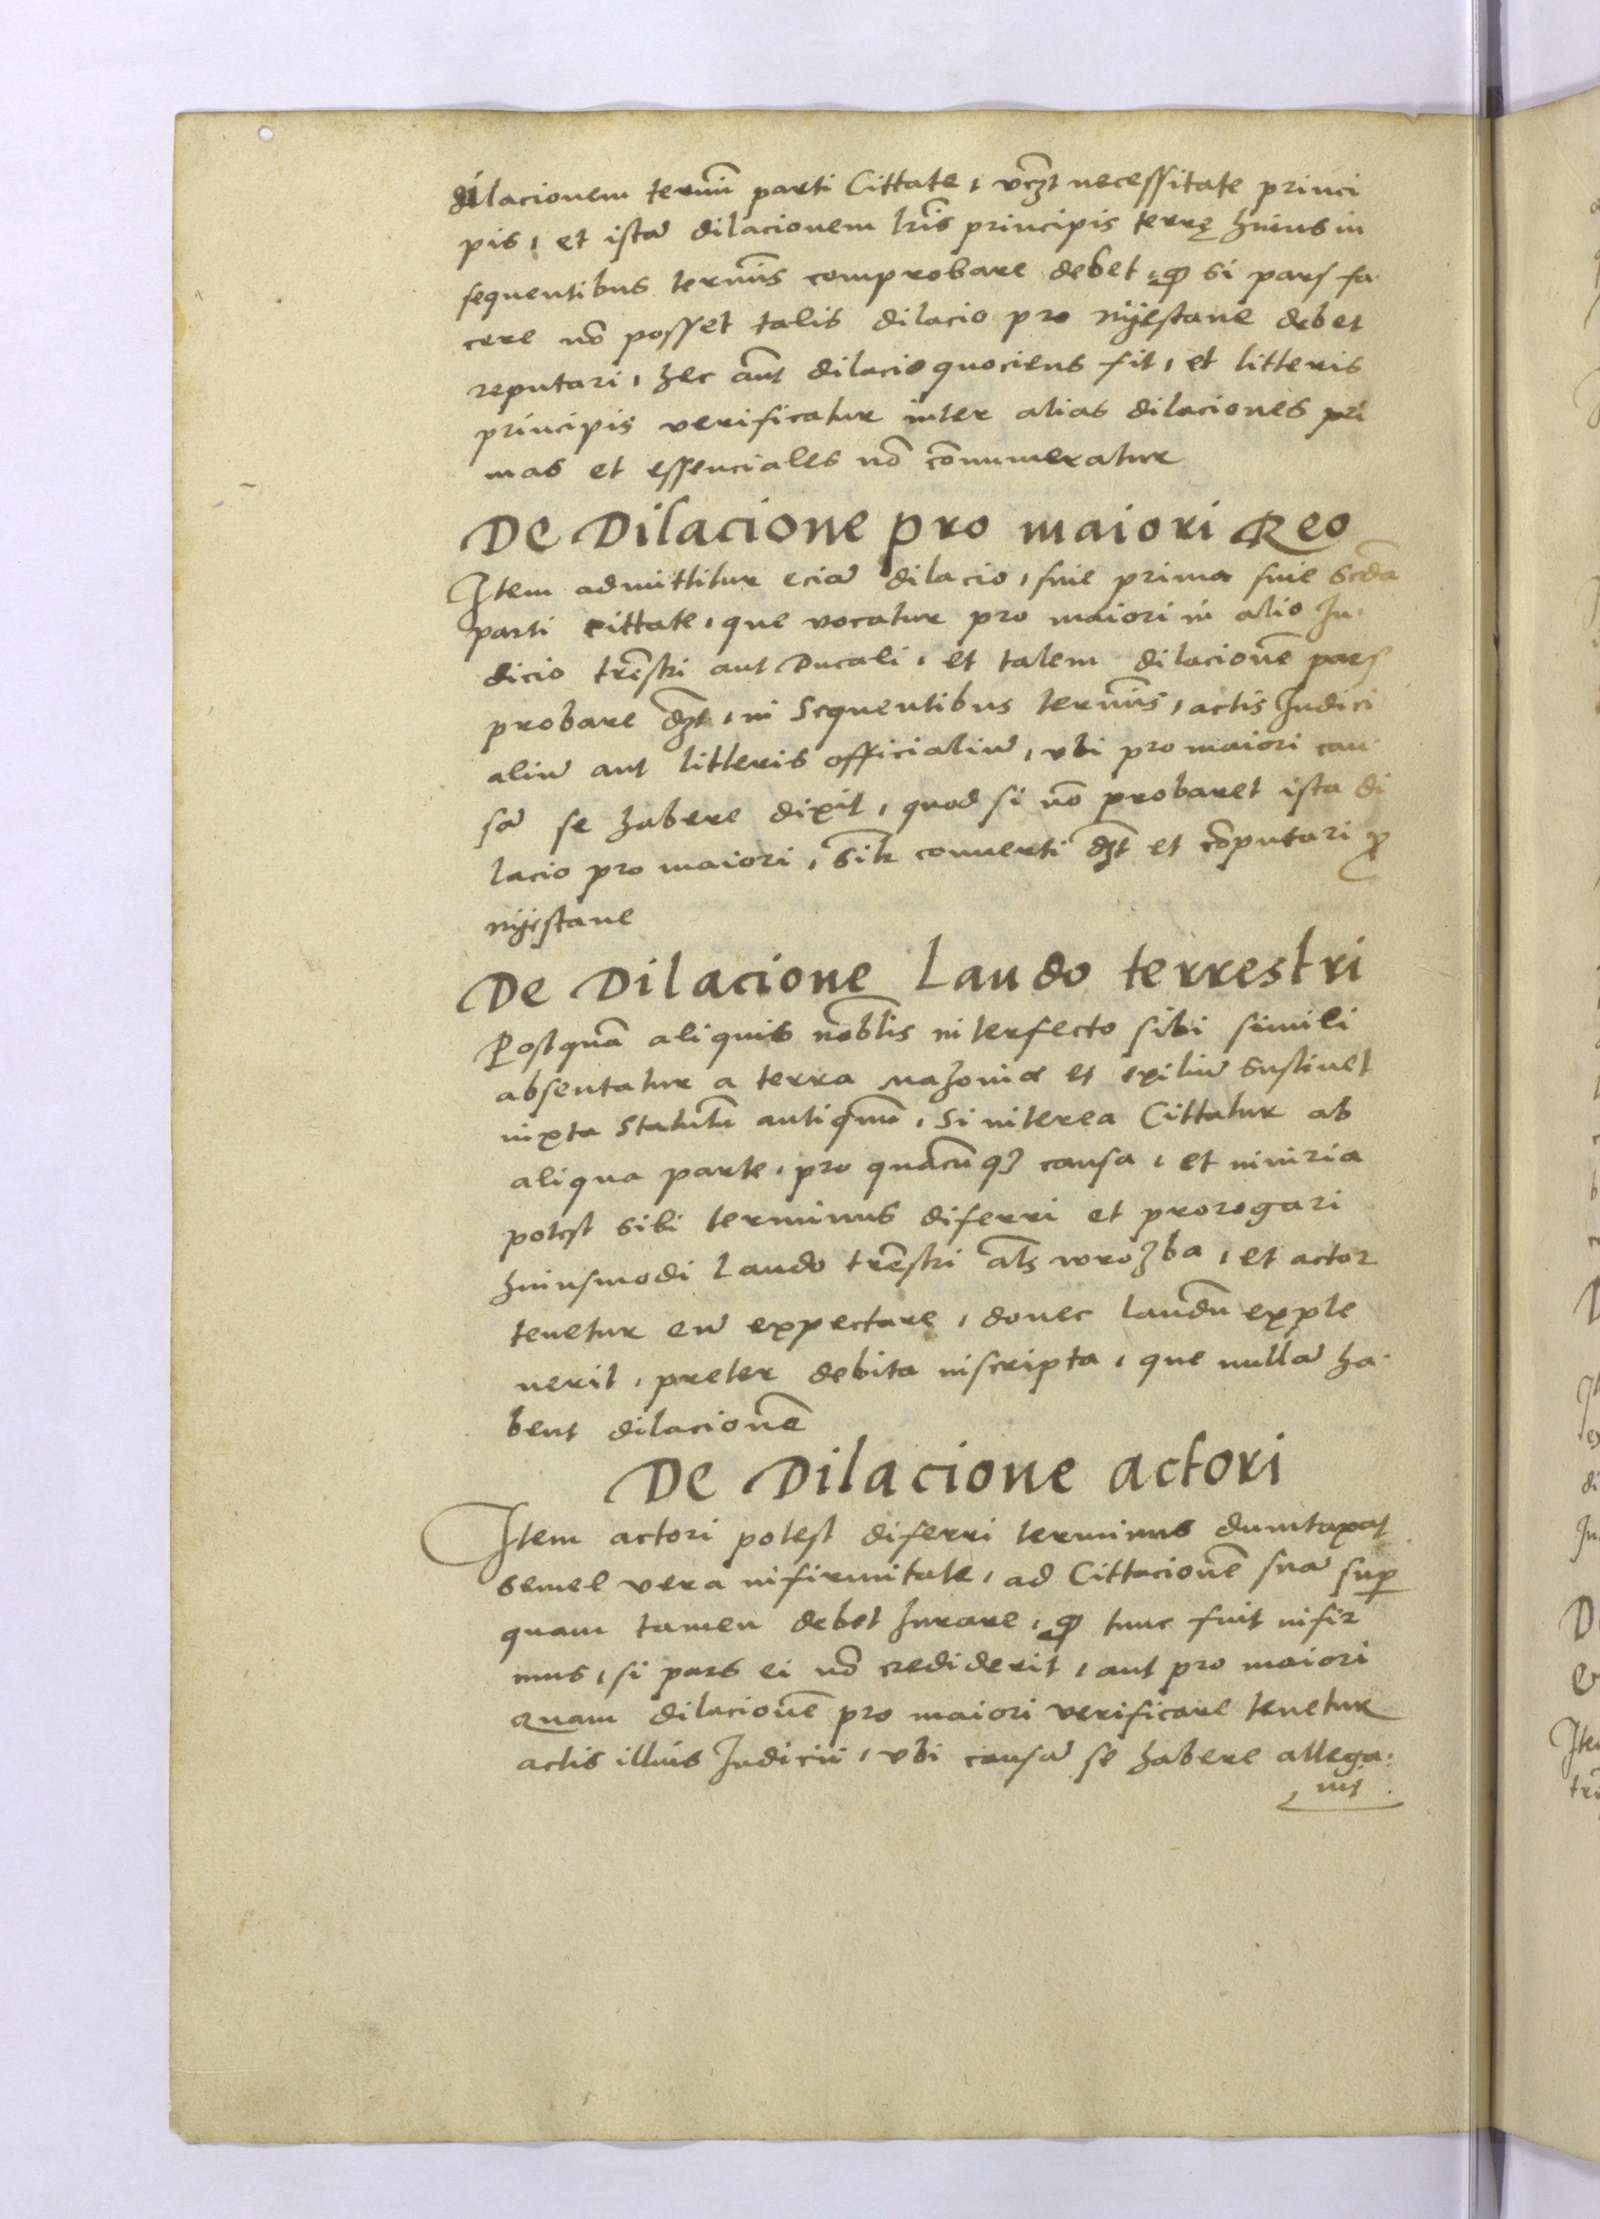 dilacionem termīn parti Cittate, vdczt necessitate princi
pis, et istā dilacionem lrīs principis terrę huius in
sequentibus termīs comprobare debet, qđ si pars fa
cere nō posset talis dilacio pro nijestane debet
reputari, hec aūt dilacio quociens fit, et litteris
principis verificatur inter alias dilaciones pri
mas et essenciales nō cōnumeratur
De Dilacione pro maiori Reo
Item admittitur eciā dilacio, siue prima siue scdā
parti cittate, que vocatur pro maiori in alio Ju
dicio trēstri aut Ducali, et talem dilacionē pars
probare dʒt, in Sequentibus termīs, actis Judici
aliū aut litteris officialiū, vbi pro maiori cau
sā se habere dixit, quod si nō probaret ista di
lacio pro maiori, Silr conuerti dʒt et cōputari ꝓ
nijestane
De Dilacione Laudo terrestri
Postquā aliquis nobīlis interfecto sibi simili
absentatur a terra Mazouiæ et exiliū sustinet
iuxta Statutū antiqūm, Si interea Cittatur ab
aliqua parte, pro quācūqʒ causa, et iniuria
potest sibi terminus diferri et prorogari
huiusmodi Laudo trēstri als wrozba, et actor
tenetur eū expectare, donec laudū exple
uerit, preter debita inscripta, que nullā ha
bent dilacionē
De Dilacione actori
Item actori potest diferri terminus dumtaxat
semel vera infirmitate, ad Cittacionē suā suꝑ
quam tamen debet Jurare, qđ tunc fuit infir
mus, si pars ei nō crediderit, aut pro maiori
Quam dilacionē pro maiori verificare tenetur
actis illius Judicii, vbi causā se habere allega:
uit